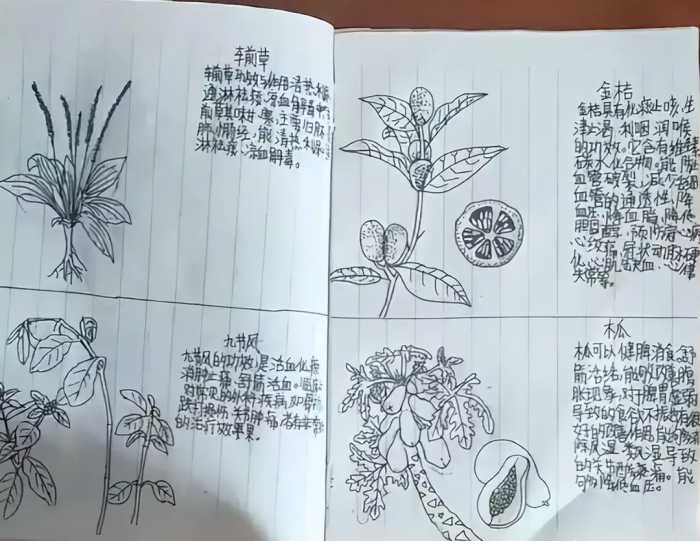 车前草
车前草功效与作用清热利尿
通淋祛痰,凉血解毒中车
前草其味甘,寒,主要归肾
肺小肠经,能清热利尿
淋祛痰,凉血解毒。
金桔
金桔具有化痰止咳,生
津止渴,利咽润喉
的功效。它含有维
碳水化合物。能阻
血管破裂,减少细
血管的通透性,降
血压,降血脂,降低
胆固醇,预防
心绞痛,冠状动脉硬
化,心肌缺血,心律
失常等。
九节风
九节风的功效,是活血化瘀
消肿止痛,舒筋活血。
对常见的外科疾病,如骨折
跌打损伤,关节肿痛,
的治疗效果。
木瓜
木瓜可以健脾消食,舒
筋活络,能够改善腹
胀现象,对于脾胃虚弱
导致的食欲不振,
好的改善作用,有效
除风湿,
的关节疼痛。能
够降低血压。